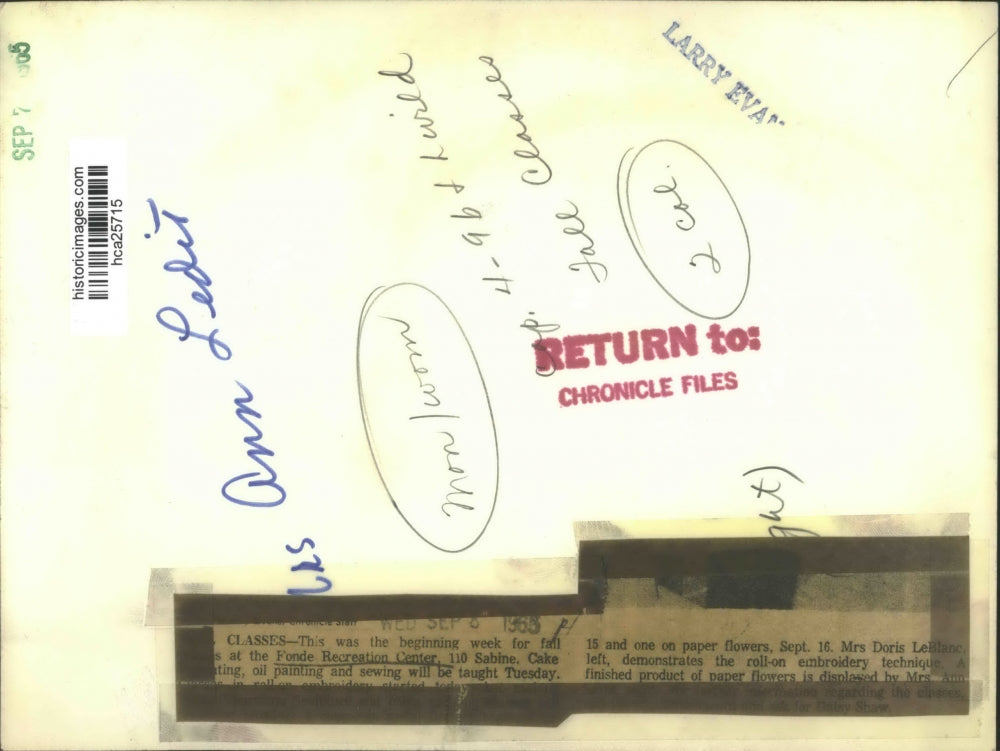 SEP 7 1965
historicimages.com
hca25715
LARRY EVA
Mrs Ann Ledit
4-9b
Fall Classes
2 col.
RETURN to:
CHRONICLE FILES
Chronicle Staff
WED SEP 8 1965
CLASSES—This was the beginning week for fall
s at the Fonde Recreation Center, 110 Sabine. Cake
ating, oil painting and sewing will be taught Tuesday.
in roll-on embroidery started today
15 and one on paper flowers, Sept. 16. Mrs Doris LeBlanc,
left, demonstrates the roll-on embroidery technique. A
finished product of paper flowers is displayed by Mrs. Ann
information regarding the classes,
ask for Daisy Shaw.